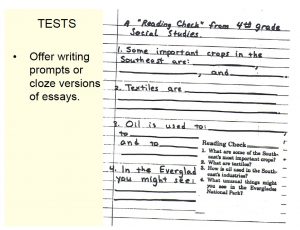 TESTS
• Offer writing
prompts or
cloze versions
of essays.
A "Reading Check" from 4th grade
Social Studies.
1. Some important crops in the
Southeast are:
, and
2. Textiles are
3. Oil is used to:
to
and to
4. In the Everglad
you might see:
Reading Check
1. What are some of the South-
east's most important crops?
2. What are textiles?
3. How is oil used in the South-
east's industries?
4. What unusual things might
you see in the Everglades
National Park?